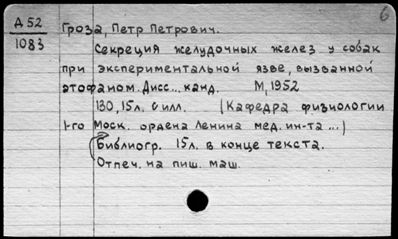 6
Д 52
1083
Гроза, Петр Петрович.
Секреция желудочных желез у собак
при экспериментальной язве, вызванной
атофаном. Дисс... канд. М, 1952
130, 15 л. с илл. (Кафедра физиологии
1-го Моск. ордена Ленина мед. ин-та ...)
Библиогр. 15 л. в конце текста.
Отпеч. на пиш. маш.